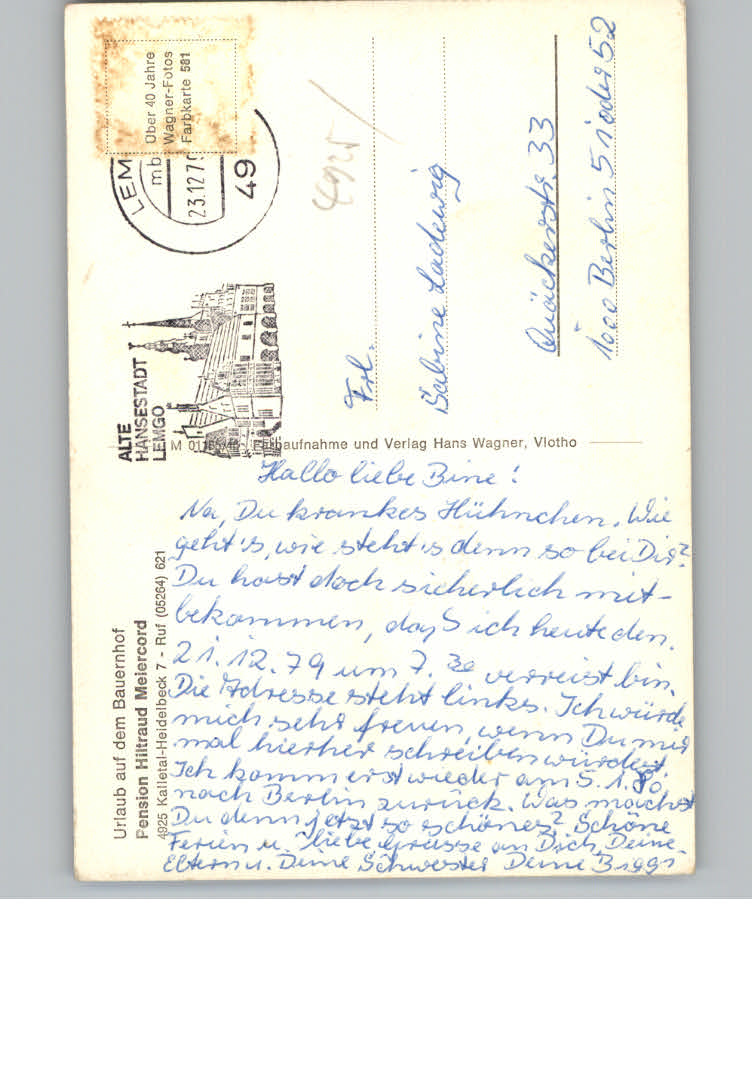 Urlaub auf dem Bauernhof
Pension Hiltraud Meiercord
4925 Kalletal-Heidelbeck 7 - Ruf (05264) 621
Hallo liebe Bine!
Na, Du krankes Hühnchen. Wie
geht's, wie steht's denn so bei Dir?
Du hast doch sicherlich mit-
bekommen, daß ich heute den.
21.12.79 um 7.30 verreist bin.
Die Adresse steht links. Ich würde
mich sehr freuen, wenn Du mir
mal hierher schreiben würdest.
Ich komm erst wieder am 5.1.80
nach Berlin zurück. Was machst
Du denn jetzt so schönes? Schöne
Ferien u. liebe Grüsse an Dich, Deine
Eltern u. Deine Schwester Deine Biggi
M Farbaufnahme und Verlag Hans Wagner, Vlotho
ALTE
HANSESTADT
LEMGO
LEM
mb
23.12.79
49
Über 40 Jahre
Wagner-Fotos
Farbkarte 581
4925
Frl.
Sabine Ladewig
Quäckerstr. 33
1000 Berlin 51 oder 52